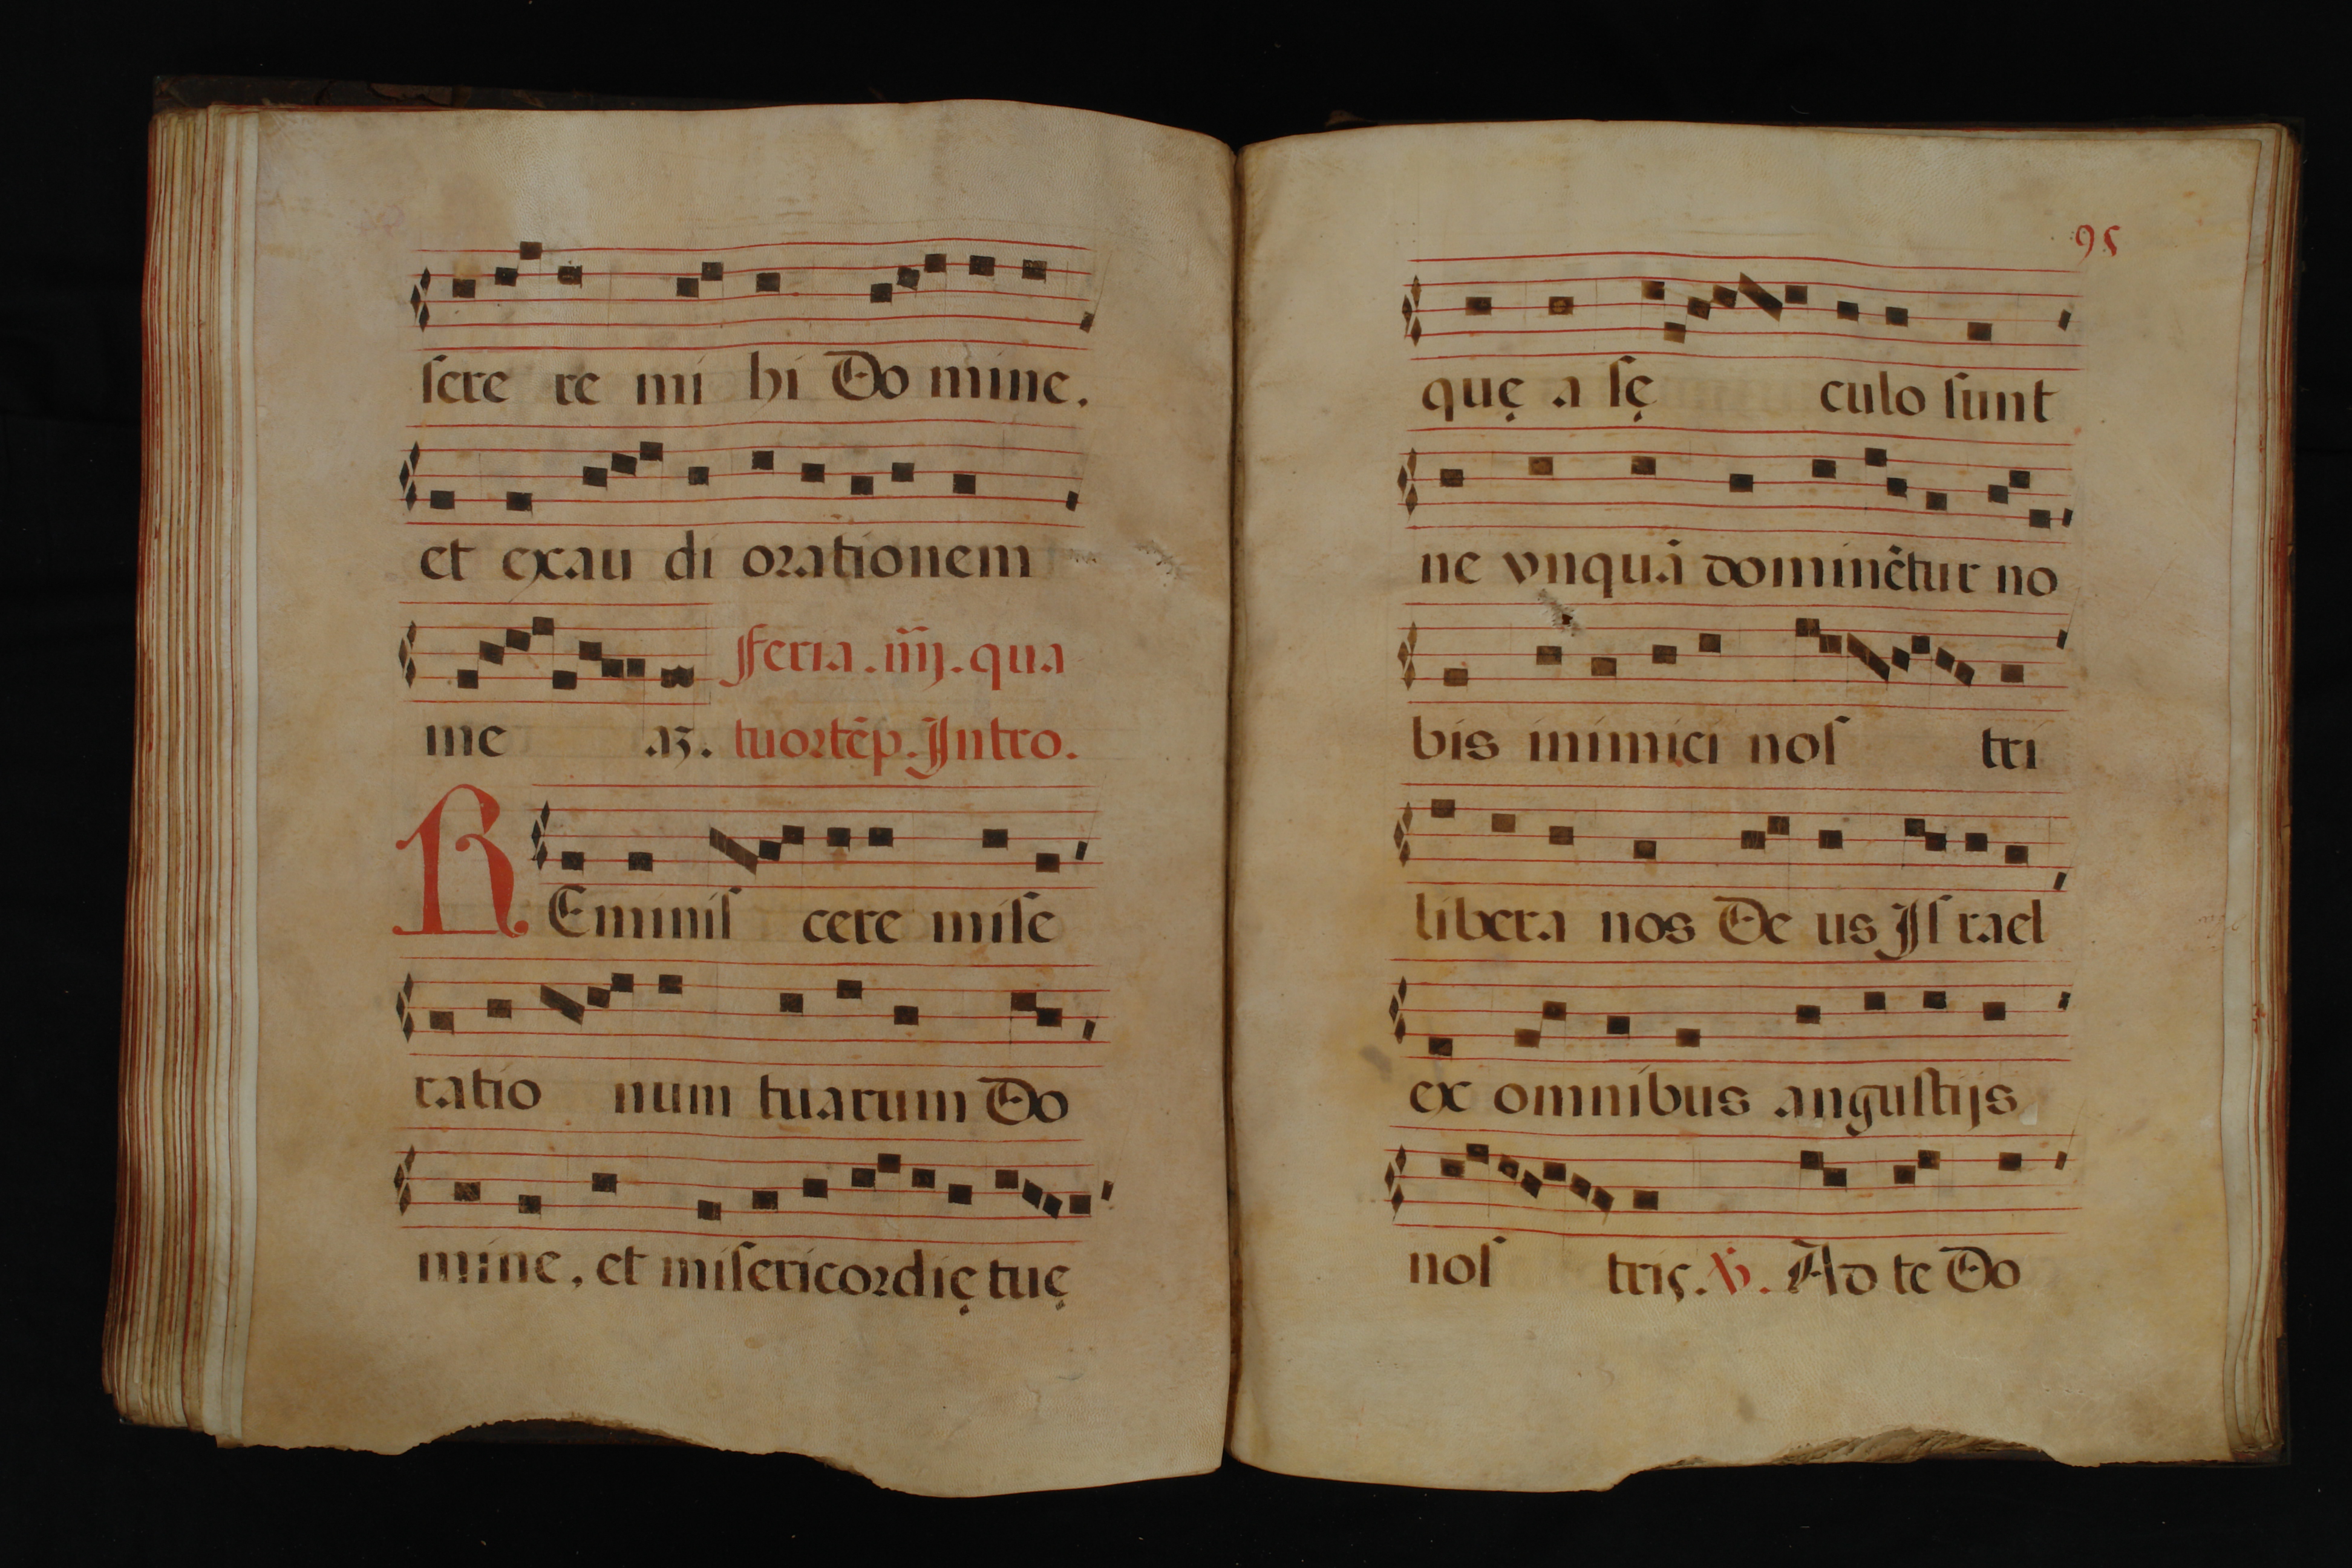 sere re mi hi Do mine.
et exau di orationem
Feria . iiij . qua
me aʒ. tuortẽp. Intro.
REminis cere mise
ratio num tuarum Do
mine, et misericordię tuę
95
quę a sę culo sunt
ne vnquã dominẽtur no
bis inimici nos tri
libera nos De us Is rael
ex omnibus angustijs
nos tris. ℣. Ad te Do